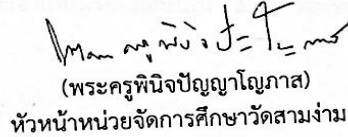 (พระครูพินิจปัญญาโญภาส)
หัวหน้าหน่วยจัดการศึกษาวัดสามง่าม